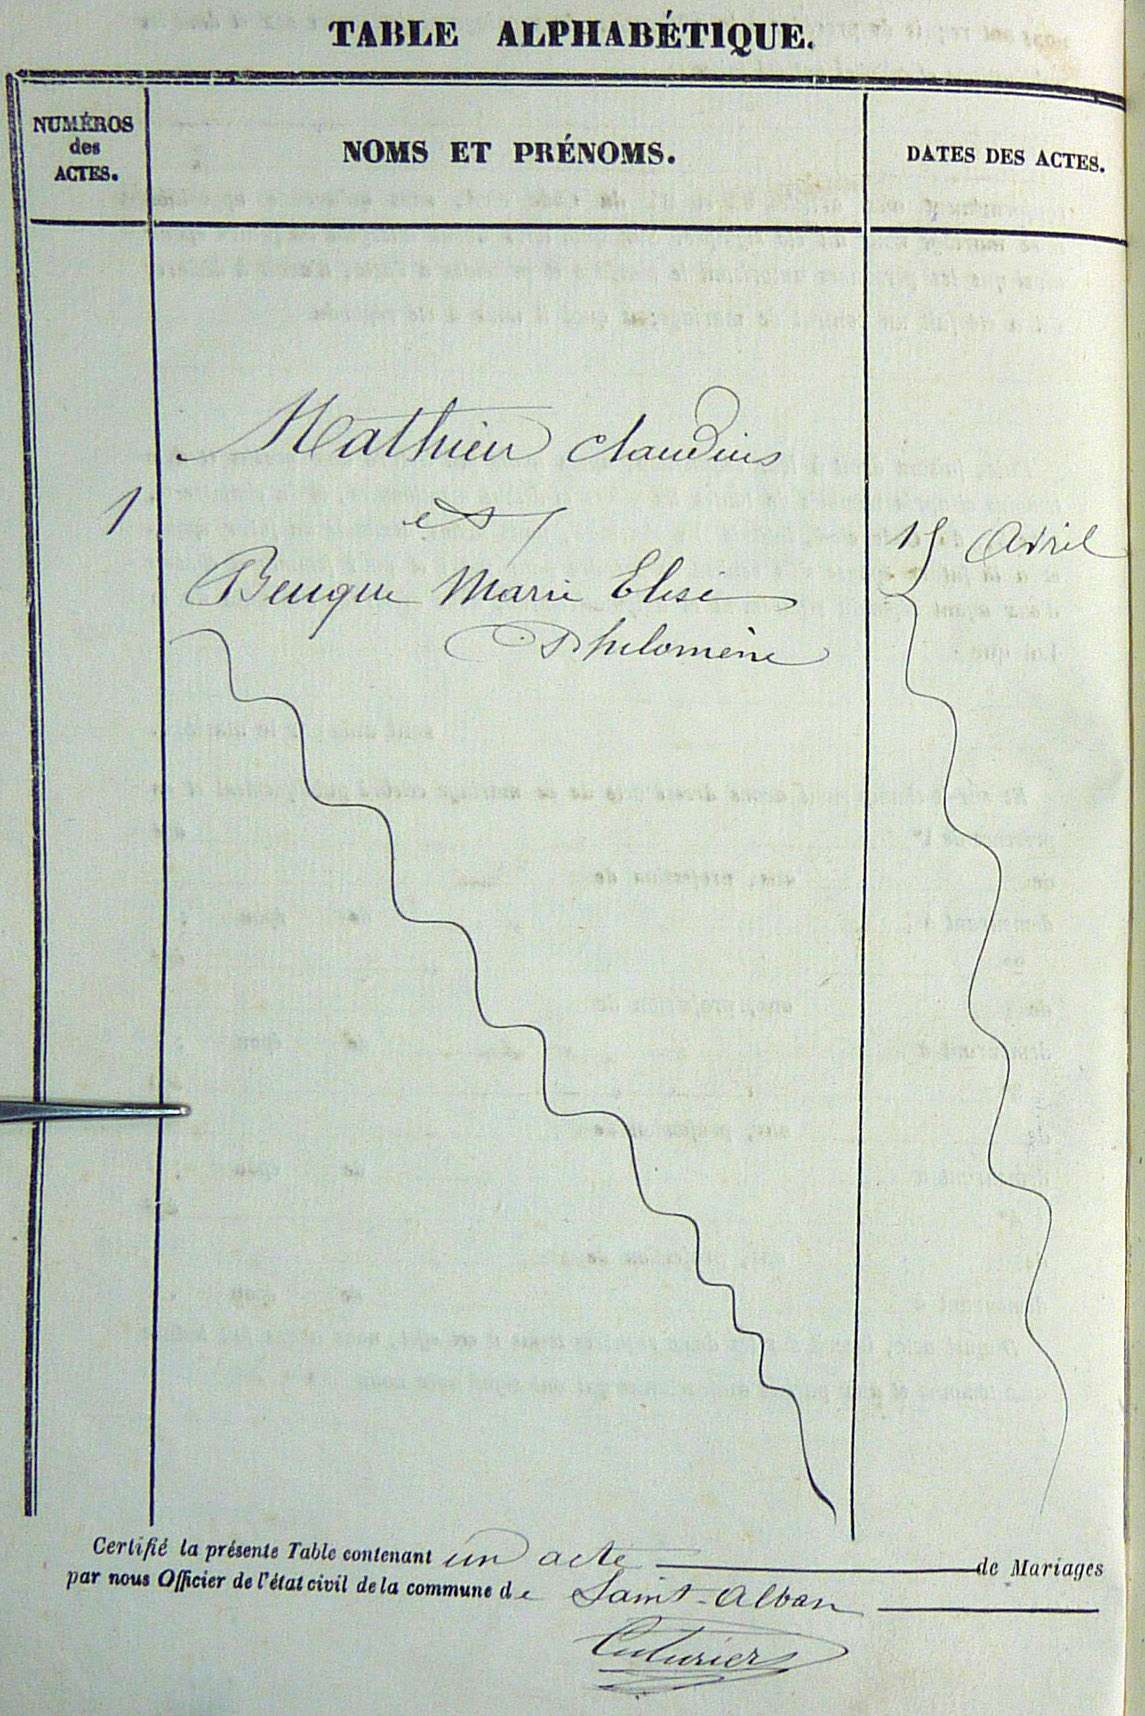 TABLE ALPHABÉTIQUE.
NUMÉROS
des
ACTES.
NOMS ET PRÉNOMS.
DATES DES ACTES.
Mathieu Claudius
1
et
15 Avril
Beuque Marie Elise
Philomène
Certifié la présente Table contenant un acte de Mariages
par nous Officier de l'état civil de la commune de Saint-Alban